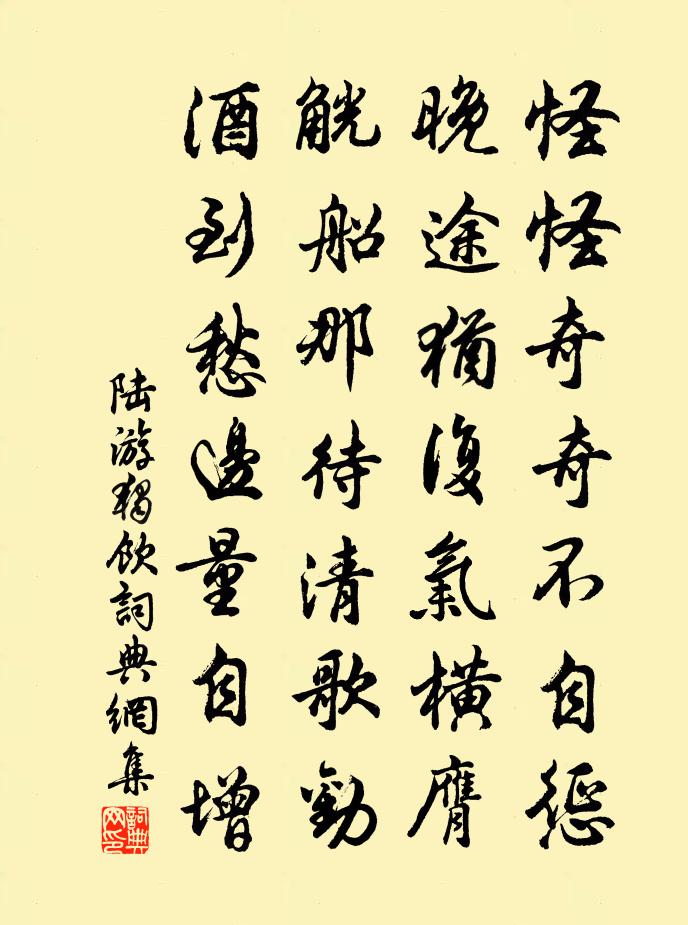 怪怪奇奇不自懲
晚途猶復氣橫膺
觥船那待清歌勸
酒到愁邊量自增
陆游獨飲詞典網集
詞典网印